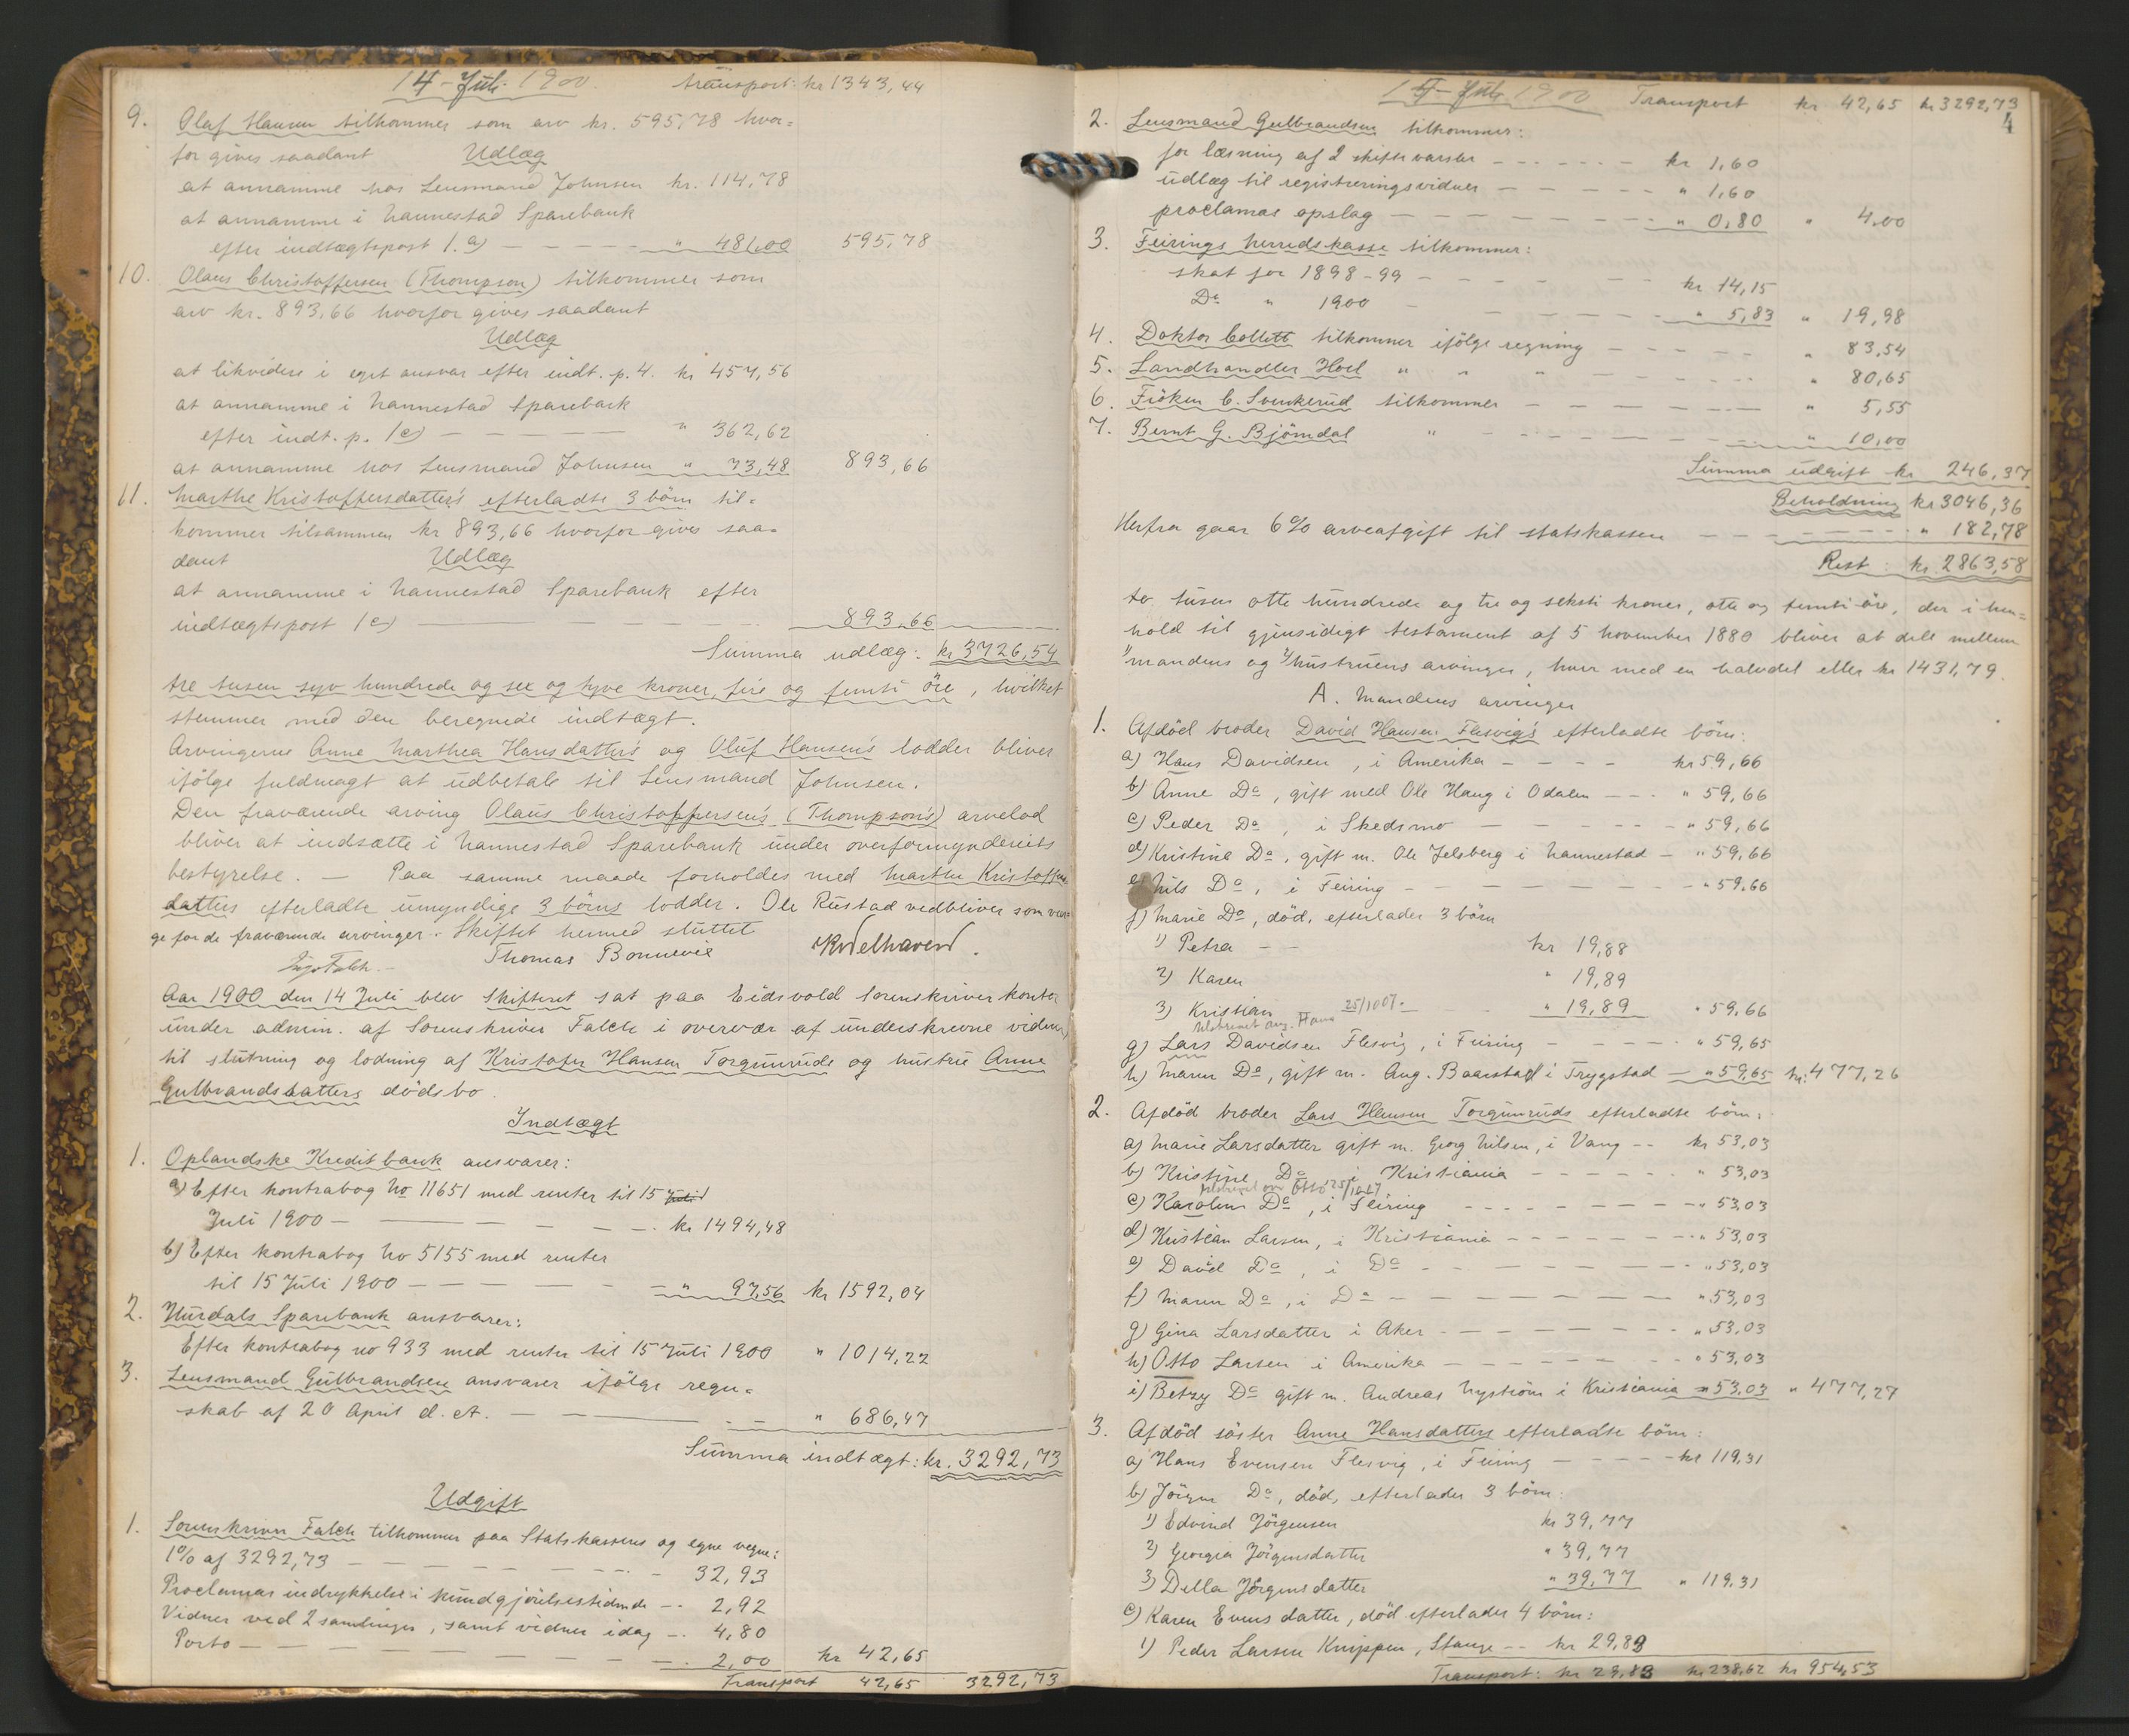 14 - Juli 1900. transport: kr 1343,44
9. Olaf Hansen tilkommer som arv kr. 595,78 hvor=
for gives saadant Udlæg
at annamme hos Lensmand Johnsen kr. 114,78
at annamme i Nannestad Sparebank
efter indtægtspost 1.a) — — — — — " 481,00 595,78
10. Olaus Christoffersen (Thompson) tilkommer som
arv kr. 893,66 hvorfor gives saadant
Udlæg
at likvidere i eget ansvar efter indt. p. 4. kr 457,56
at annamme i Nannestad Sparebank
efter indt. p. 1c) — — — — " 362,62
at annamme hos Lensmand Johnsen " 73,48 893,66
11. Marthe Kristoffersdatter's efterladte 3 börn til=
kommer tilsammen kr 893,66 hvorfor gives saa=
dant Udlæg
at annamme i Nannestad Sparebank efter
indtægtspost 1c) — — — 893,66
Summa udlæg: kr 3726,54
tre tusen syv hundrede og sex og tyve kroner, fire og femti öre, hvilket
stemmer med den beregnede indtægt.
Arvingerne Anne Marthea Hansdatter's og Oluf Hansen's lodder bliver
ifölge fuldmagt at udbetale til Lensmand Johnsen.
Den fraværende arving Olaus Christoffersen's (Thompson's) arvelod
bliver at indsætte i Nannestad Sparebank under overformynderiets
bestyrelse. — Paa samme maade forholdes med Marthe Kristoffers
datters efterladte umyndige 3 börns lodder. Ole Rustad vedbliver som vær=
ge for de fraværende arvinger. Skiftet hermed sluttet
Falch. Thomas Bonnevie KWelhaven.
Aar 1900 den 14 Juli blev Skifteret sat paa Eidsvold Sorenskriverkontor
under admin. af Sorenskriver Falch i overvær af underskrevne vidner,
til slutning og lodning af Kristofer Hansen Torgunruds og hustru Anne
Gulbrandsdatters dödsbo.
Indtægt
1. Oplandske Kreditbank ansvarer:
a) Efter kontrabog No 11651 med renter til 15 Juli
Juli 1900 — — — — — kr 1494,48
b) Efter kontrabog No 5155 med renter
til 15 Juli 1900 — — — — — " 97,56 kr 1592,04
2. Hurdals Sparebank ansvarer:
Efter kontrabog no 933 med renter til 15 Juli 1900 " 1014,22
3. Lensmand Gulbrandsen ansvarer ifölge regn=
skab af 20 April d. A. — — — — " 686,47
Summa indtægt: kr. 3292,73
Udgift
1. Sorenskriver Falch tilkommer paa Statskassens og egne vegne:
1% af 3292,73 — — — — — 32,93
Proclamas indrykkelse i kundgjörelsestidende — 2,92
Vidner ved 2 samlinger, samt vidner idag — 4,80
Porto — — — — — — — 2,00 kr 42,65
Transport 42,65 3292,73
14 - Juli 1900 Transport kr 42,65 kr 3292,73
4
2. Lensmand Gulbrandsen tilkommer:
for læsning af 2 skiftevarsler — — — — kr 1,60
udlæg til registreringsvidner — — — — " 1,60
proclamas opslag — — — — — — " 0,80 " 4,00
3. Feirings herredskasse tilkommer:
skat for 1898-99 — — — — — kr 14,15
Do " 1900 — — — — — " 5,83 " 19,98
4. Doktor Collett tilkommer ifölge regning — — — — " 83,54
5. Landhandler Hoel " " " — — — — " 80,65
6. Fröken C. Svenkerud tilkommer — — — — — " 5,55
7. Bernt G. Björndal " — — — — — — " 10,00
Summa udgift kr 246,37
Beholdning kr 3046,36
Herfra gaar 6% arveafgift til statskassen — — — — — " 182,78
Rest: kr. 2863,58
to tusen otte hundrede og tre og seksti kroner, otte og femti öre, der i hen=
hold til gjensidigt testament af 5 November 1880 bliver at dele mellem
1) mandens og 2) hustruens arvinger, hver med en halvdel eller kr 1431,79.
A. Mandens arvinger
1. Afdöd broder David Hansen Flesvig's efterladte börn:
a) Hans Davidsen, i Amerika — — — — kr 59,66
b) Anne Do, gift med Ole Haug i Odalen — — — " 59,66
c) Peder Do, i Skedsmo — — — — — " 59,66
d) Kristine Do, gift m. Ole Jelsberg i Nannestad — " 59,66
e) Nils Do, i Feiring — — — — — — — " 59,66
f) Marie Do, död, efterlader 3 börn
1) Petra — — kr 19,88
2) Karen " 19,89
3) Kristian 25/10 07. " 19,89 " 59,66
g) Lars Davidsen Flesvig, i Feiring — — — — " 59,65
h) Maren Do, gift m. Aug. Baarstad i Trygstad — " 59,65 kr. 477,26
2. Afdöd broder Lars Hansen Torgunruds efterladte börn:
a) Marie Larsdatter gift m. Georg Nilsen, i Vang — — kr 53,03
b) Kristine Do i Kristiania — — — — — — " 53,03
c) Karoline Do, i Feiring — — — — — — — " 53,03
d) Kristian Larsen, i Kristiania — — — — — — " 53,03
e) David Do, i Do — — — — — — — " 53,03
f) Maren Do, i Do — — — — — — — " 53,03
g) Gina Larsdatter i Aker — — — — — — — " 53,03
h) Otto Larsen i Amerika — — — — — — " 53,03
i) Betzy Do gift m. Andreas Nyström i Kristiania " 53,03 " 477,27
3. Afdöd söster Anne Hansdatters efterladte börn:
a) Hans Evensen Flesvig, i Feiring — — — — kr 119,31
b) Jörgen Do, död, efterlader 3 börn:
1) Edvind Jörgensen kr 39,77
2) Georgia Jörgensdatter " 39,77
3) Della Jörgensdatter " 39,77 " 119,31
c) Karen Evensdatter, död efterlader 4 börn:
1) Peder Larsen Knippen, Stange — — kr 29,83
Transport: kr 29,83 kr 238,62 kr 954,53